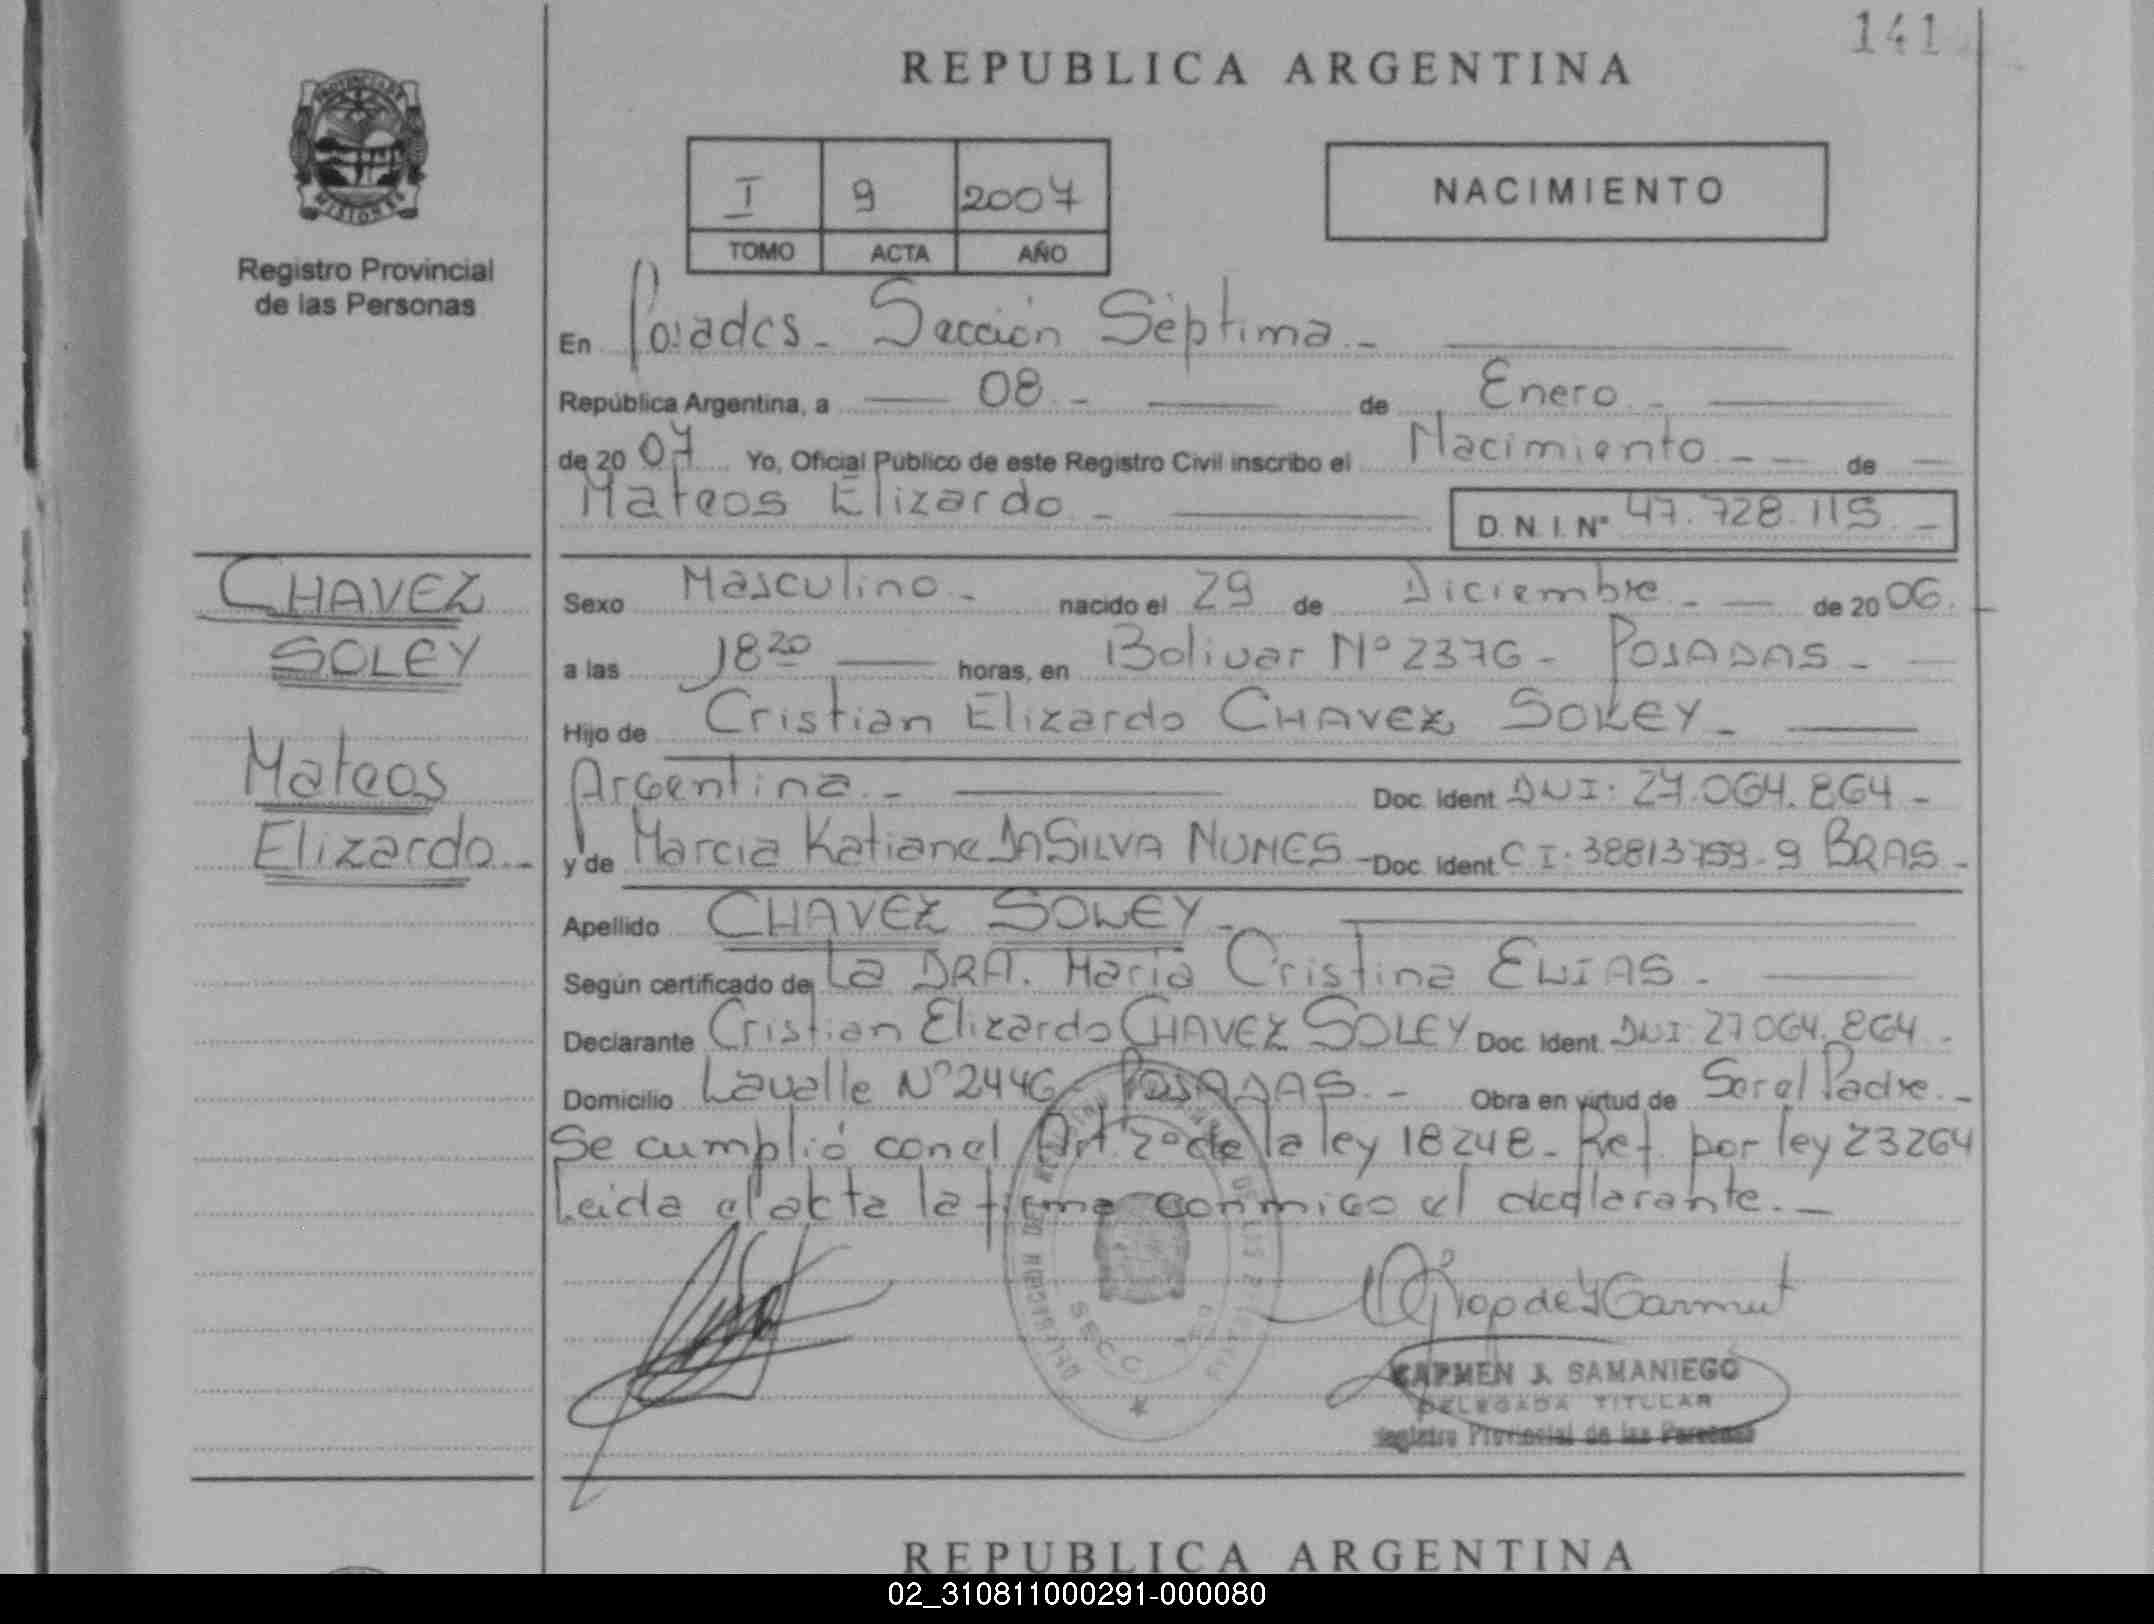 141
REPUBLICA ARGENTINA
PROVINCIA DE
MISIONES
I 9 2007
TOMO ACTA AÑO
NACIMIENTO
Registro Provincial
de las Personas
En Posadas - Sección Séptima -
República Argentina, a 08 - de Enero -
de 2007 Yo, Oficial Público de este Registro Civil inscribo el Nacimiento - - de -
Mateos Elizardo - D. N. I. Nº 47.728.115. -
CHAVEZ
SOLEY
Mateos
Elizardo -
Sexo Masculino - nacido el 29 de Diciembre - - de 2006. -
a las 18 20 horas, en Bolivar Nº 2376 - POSADAS -
Hijo de Cristian Elizardo CHAVEZ SOLEY -
Argentina. - Doc. Ident DNI: 27.064.864 -
y de Marcia Katiane DA SILVA NUNES - Doc. Ident CI: 38813759-9 BRAS -
Apellido CHAVEZ SOLEY -
Según certificado de La DRA. María Cristina ELIAS -
Declarante Cristian Elizardo CHAVEZ SOLEY Doc. Ident. DNI 27.064.864 -
Domicilio Lavalle Nº 2446 POSADAS. - Obra en virtud de Ser el Padre. -
Se cumplió con el Art. 2º de la ley 18248 - Ref. por ley 23264
Leida el acta la firma conmigo el declarante. -
CARMEN J. SAMANIEGO
DELEGADA TITULAR
Registro Provincial de las Personas
REPUBLICA ARGENTINA
02_310811000291-000080